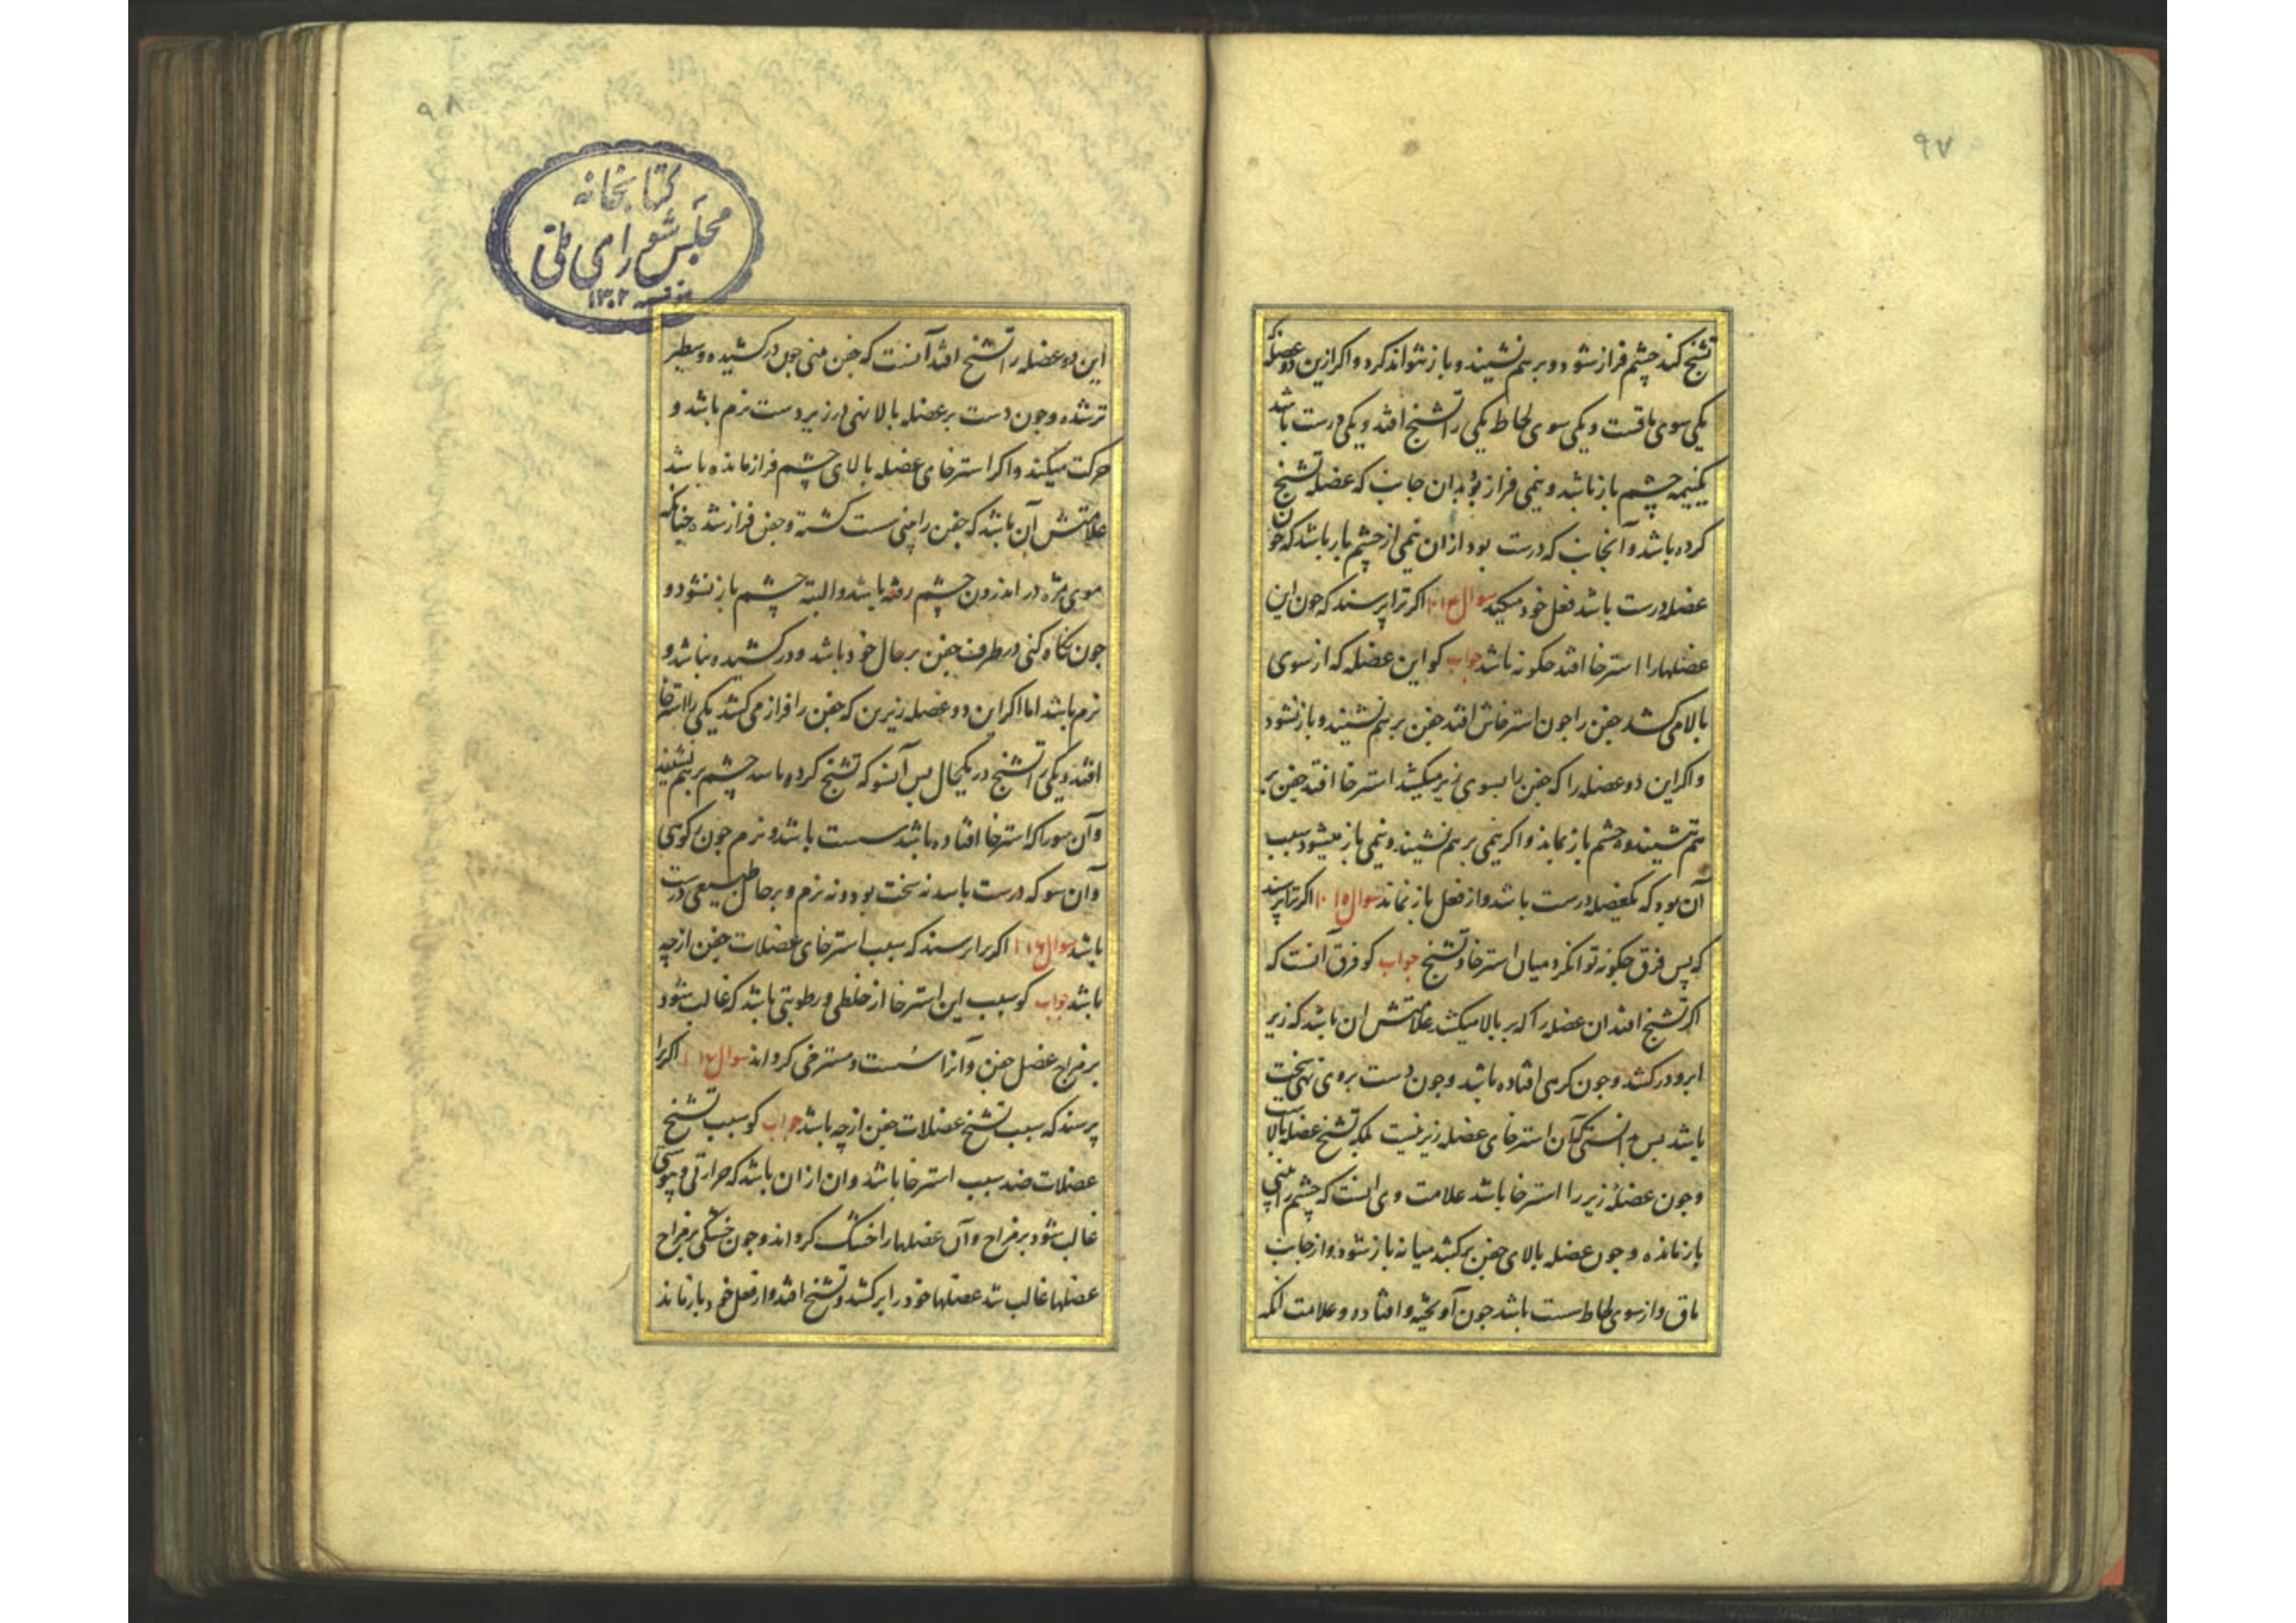 ۹۷
تشنج کند چشم فراز شود و برهم نشیند و باز نتواند کرد و اکر ازین دو عضله
یکی سوی ماقست و یکی سوی لحاظ یکی را تشنج افتد و یکی درست باشد
یکنیمه چشم باز باشد و نیمی فراز بود بدان جانب که عضله تشنج
کرده باشد و آنجانب که درست بود ازان نیمی از چشم باز باشد که چون
عضله درست باشد فعل خود میکند سوال ۱۰۱۴ اکر ترا پرسند که چون این
عضلهارا استرخا افتد چکونه باشد جواب کو این عضله که از سوی
بالا می کشد جفن را چون استرخاش افتد جفن برهم نشیند و باز نشود
و اکر این دو عضله را که جفن را بسوی زیر میکشد استرخا افتد جفن بر
هم نشیند و چشم باز نماند و اکر نیمی برهم نشیند و نیمی باز میشود سبب
آن بود که یکعضله درست باشد و از فعل باز نماند سوال ۱۰۱۵ اکر ترا پرسند
که پس فرق چکونه توان کرد میان استرخا و تشنج جواب کو فرق آنست که
اکر تشنج افتد ان عضله را که بر بالا میکشد علامتش ان باشد که زیر
ابرو در کشد و چون کرهی افتاده باشد و چون دست بروی نهی سخت
باشد پس بدانستی که آن استرخای عضله زیر نیست بلکه تشنج عضله بالاست
و چون عضله زیر را استرخا باشد علامت وی انست که چشم را بینی
باز مانده و چون عضله بالای جفن برکشد میانه باز شود و از جانب
ماق و از سوی لحاظ سست باشد چون آویخته و افتاده و علامت انکه
۹۸
کتابخانه
مجلس شورای ملی
۱۳۰۲
این دو عضله را تشنج افتد آنست که جفن بینی چون در کشیده و سطبر
تر شده و چون دست بر عضله بالا نهی در زیر دست نرم باشد و
حرکت میکند و اکر استرخای عضله بالای چشم فراز مانده باشد
علامتش آن باشد که جفن را بینی سست کشته و جفن فراز شده چنانکه
موی مژه در اندرون چشم رفته باشد و البته چشم باز نشود و
چون نکاه کنی در طرف جفن بر حال خود باشد و در کشیده نباشد و
نرم باشد اما اکر این دو عضله زیرین که جفن را فراز می کشد یکی را استرخا
افتد و یکی را تشنج در یکحال پس آنسو که تشنج کرده باشد چشم برهم نشیند
و آن سو را که استرخا افتاده باشد سست باشد و نرم چون کوی
و آن سو که درست باشد نه سخت بود و نه نرم و بر حال طبیعی درست
باشد سوال ۱۰۱۶ اکر ترا پرسند که سبب استرخای عضلات جفن از چه
باشد جواب کو سبب این استرخا از خلطی و رطوبتی باشد که غالب شود
بر مزاج عضل جفن و آنرا سست و مسترخی کرداند سوال ۱۰۱۷ اکر ترا
پرسند که سبب تشنج عضلات جفن از چه باشد جواب کو سبب تشنج
عضلات ضد سبب استرخا باشد و ان از ان باشد که حرارتی و یبوستی
غالب شود بر مزاج و آن عضلهارا خشک کرداند و چون خشکی بر مزاج
عضلها غالب شد عضلها خود را برکشد و تشنج افتد و از فعل خود باز ماند